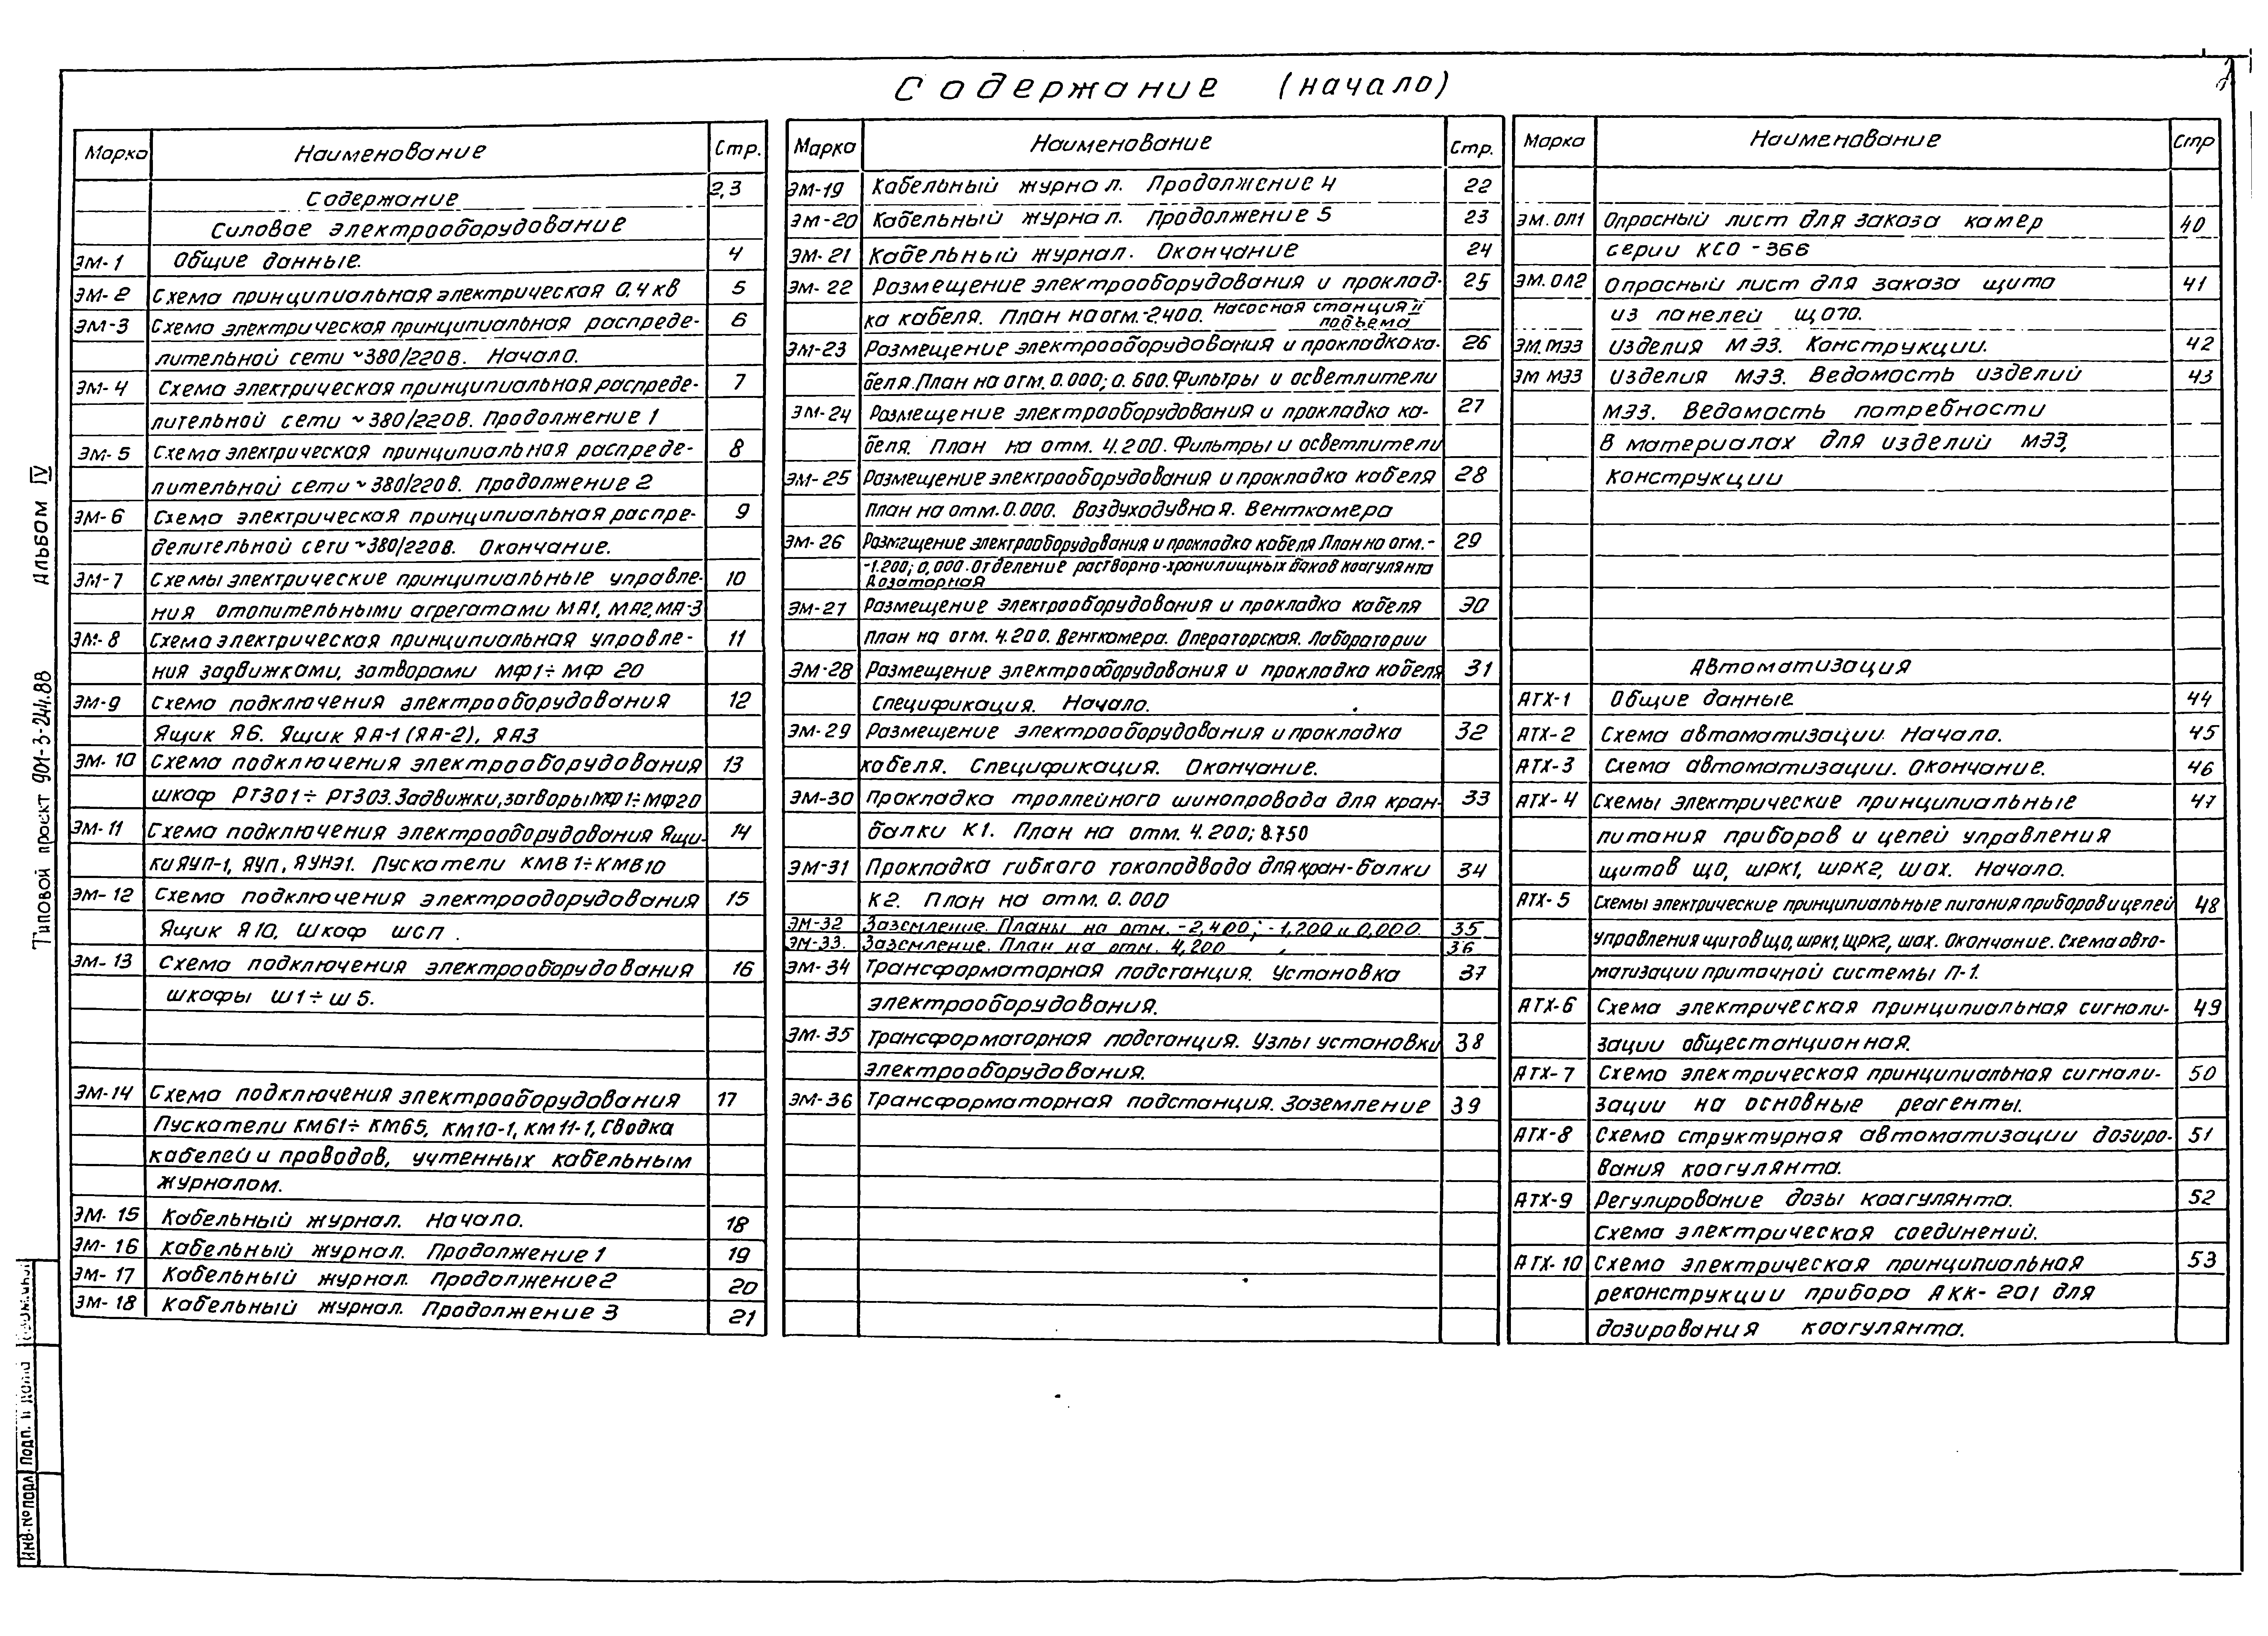 Содержание (начало)
Марка Наименование Стр.
Содержание 2,3
Силовое электрооборудование
ЭМ-1 Общие данные. 4
ЭМ-2 Схема принципиальная электрическая 0,4 кв 5
ЭМ-3 Схема электрическая принципиальная распреде- 6
лительной сети ~380/220В. Начало.
ЭМ-4 Схема электрическая принципиальная распреде- 7
лительной сети ~380/220В. Продолжение 1
ЭМ-5 Схема электрическая принципиальная распреде- 8
лительной сети ~380/220В. Продолжение 2
ЭМ-6 Схема электрическая принципиальная распре- 9
делительной сети ~380/220В. Окончание.
ЭМ-7 Схемы электрические принципиальные управле- 10
ния отопительными агрегатами МА1, МА2, МА-3
ЭМ-8 Схема электрическая принципиальная управле- 11
ния задвижками, затворами МФ1÷МФ 20
ЭМ-9 Схема подключения электрооборудования 12
Ящик Я6. Ящик ЯА-1 (ЯА-2), ЯА3
ЭМ-10 Схема подключения электрооборудования 13
шкаф РТ301÷РТ303. Задвижки, затворы МФ1÷МФ20
ЭМ-11 Схема подключения электрооборудования Ящи- 14
ки ЯУП-1, ЯУП, ЯУНЭ1. Пускатели КМВ1÷КМВ10
ЭМ-12 Схема подключения электрооборудования 15
Ящик Я10, Шкаф ШСП.
ЭМ-13 Схема подключения электрооборудования 16
шкафы Ш1÷Ш5.
ЭМ-14 Схема подключения электрооборудования 17
Пускатели КМ61÷КМ65, КМ10-1, КМ11-1, Сводка
кабелей и проводов, учтенных кабельным
журналом.
ЭМ-15 Кабельный журнал. Начало. 18
ЭМ-16 Кабельный журнал. Продолжение 1 19
ЭМ-17 Кабельный журнал. Продолжение 2 20
ЭМ-18 Кабельный журнал. Продолжение 3 21
Марка Наименование Стр.
ЭМ-19 Кабельный журнал. Продолжение 4 22
ЭМ-20 Кабельный журнал. Продолжение 5 23
ЭМ-21 Кабельный журнал. Окончание 24
ЭМ-22 Размещение электрооборудования и проклад- 25
ка кабеля. План на отм.-2.400. Насосная станция II
подъема
ЭМ-23 Размещение электрооборудования и прокладка ка- 26
беля. План на отм. 0.000; 0.600. Фильтры и осветлители
ЭМ-24 Размещение электрооборудования и прокладка ка- 27
беля. План на отм. 4.200. Фильтры и осветлители
ЭМ-25 Размещение электрооборудования и прокладка кабеля 28
План на отм. 0.000. Воздуходувная. Венткамера
ЭМ-26 Размещение электрооборудования и прокладка кабеля План на отм.- 29
-1.200; 0,000. Отделение растворно-хранилищных баков коагулянта
Дозаторная
ЭМ-27 Размещение электрооборудования и прокладка кабеля 30
План на отм. 4.200. Венткамера. Операторская. Лаборатории
ЭМ-28 Размещение электрооборудования и прокладка кабеля 31
Спецификация. Начало.
ЭМ-29 Размещение электрооборудования и прокладка 32
кабеля. Спецификация. Окончание.
ЭМ-30 Прокладка троллейного шинопровода для кран- 33
балки К1. План на отм. 4.200; 8.750
ЭМ-31 Прокладка гибкого токоподвода для кран-балки 34
К2. План на отм. 0.000
ЭМ-32 Заземление. Планы на отм. -2,400; -1,200 и 0,000. 35
ЭМ-33. Заземление. План на отм. 4,200 36
ЭМ-34 Трансформаторная подстанция. Установка 37
электрооборудования.
ЭМ-35 Трансформаторная подстанция. Узлы установки 38
электрооборудования.
ЭМ-36 Трансформаторная подстанция. Заземление 39
Марка Наименование Стр
ЭМ.ОЛ1 Опросный лист для заказа камер 40
серии КСО-366
ЭМ.ОЛ2 Опросный лист для заказа щита 41
из панелей ЩО70.
ЭМ.МЭЗ Изделия МЭЗ. Конструкции. 42
ЭМ МЭЗ Изделия МЭЗ. Ведомость изделий 43
МЭЗ. Ведомость потребности
в материалах для изделий МЭЗ,
конструкции
Автоматизация
АТХ-1 Общие данные 44
АТХ-2 Схема автоматизации. Начало. 45
АТХ-3 Схема автоматизации. Окончание. 46
АТХ-4 Схемы электрические принципиальные 47
питания приборов и цепей управления
щитов ЩО, ШРК1, ШРК2, ШОХ. Начало.
АТХ-5 Схемы электрические принципиальные питания приборов и цепей 48
управления щитов ЩО, ШРК1, ЩРК2, ШОХ. Окончание. Схема авто-
матизации приточной системы П-1.
АТХ-6 Схема электрическая принципиальная сигнали- 49
зации общестанционная.
АТХ-7 Схема электрическая принципиальная сигнали- 50
зации на основные реагенты.
АТХ-8 Схема структурная автоматизации дозиро- 51
вания коагулянта.
АТХ-9 Регулирование дозы коагулянта. 52
Схема электрическая соединений.
АТХ-10 Схема электрическая принципиальная 53
реконструкции прибора АКК-201 для
дозирования коагулянта.
Типовой проект 901-3-244.88 Альбом IV
Инв.№ подл Подп. и дата